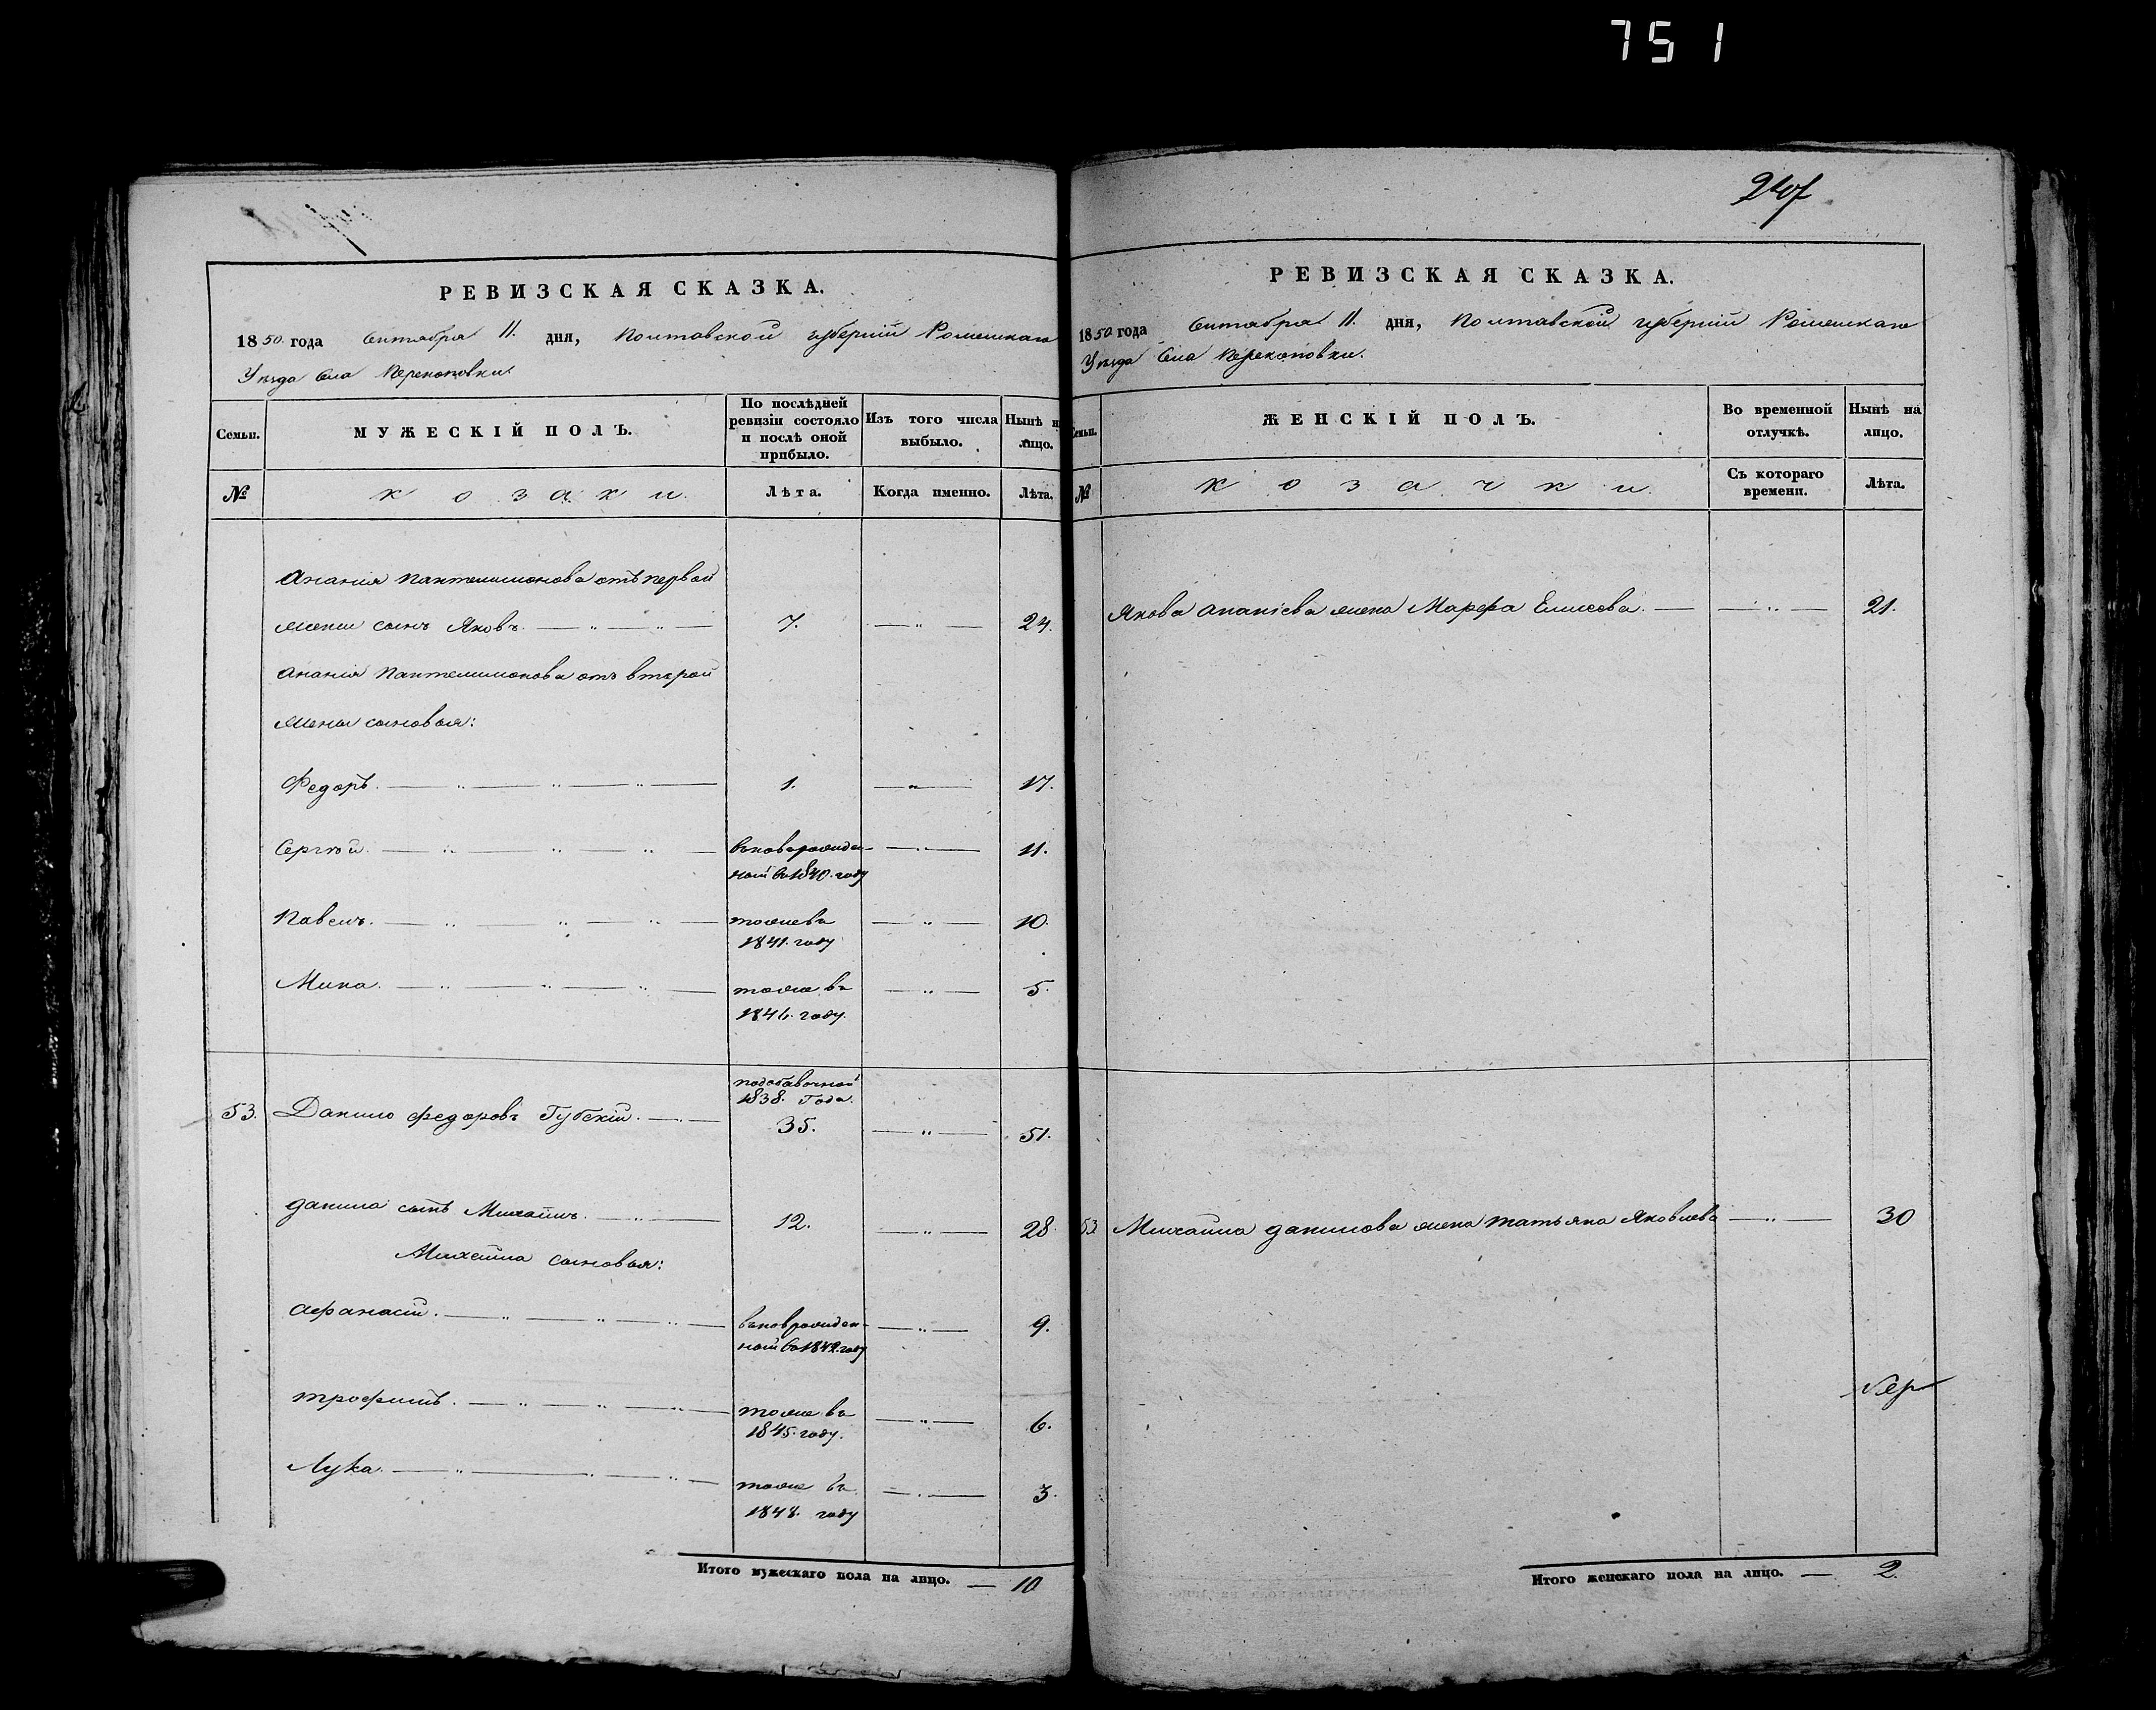 751
РЕВИЗСКАЯ СКАЗКА.
1850 года Сентября 11. дня, Полтавской губерніи Роменскаго
Уѣзда Села Перекоповки.
Семьи.
МУЖЕСКІЙ ПОЛЪ.
По послѣдней ревизіи состояло и послѣ оной прибыло.
Изъ того числа выбыло.
Нынѣ н лицо.
№
козаки.
Лѣта.
Когда именно.
Лѣта.
Анания Пантелимонова отъ первой
жени сынъ Яковъ. 7. 24.
Анания Пантелимонова отъ второй
жены сыновья:
Федоръ. 1. 17.
Сергѣй. вновьрожден-
ной въ 1840. году 11.
Павелъ. тоже въ
1841. году 10.
Мина. тоже въ
1846. году. 5.
подобавочной
1838. Года.
53. Данило Федоровъ Губскій. 35. 51.
Данила сынъ Михайлъ. 12. 28.
Михайла сыновья:
Афанасій. вновьрожден-
ной въ 1842. году 9.
Трофимъ. тоже въ
1845. году. 6.
Лука. тоже въ
1848. году 3.
Итого мужескаго пола на лицо. — 10
РЕВИЗСКАЯ СКАЗКА.
1850 года Сентября 11. дня, Полтавской губерніи Роменскаго
Уѣзда Села Перекоповки.
Семьи.
ЖЕНСКІЙ ПОЛЪ.
Во временной отлучкѣ.
Нынѣ на лицо.
№
козачки.
Съ котораго времени.
Лѣта.
Якова Ананіева жена Марфа Елисеева. 21.
53 Михайла Данилова жена Татьяна Яковлева 30
Итого женскаго пола на лицо. — 2.